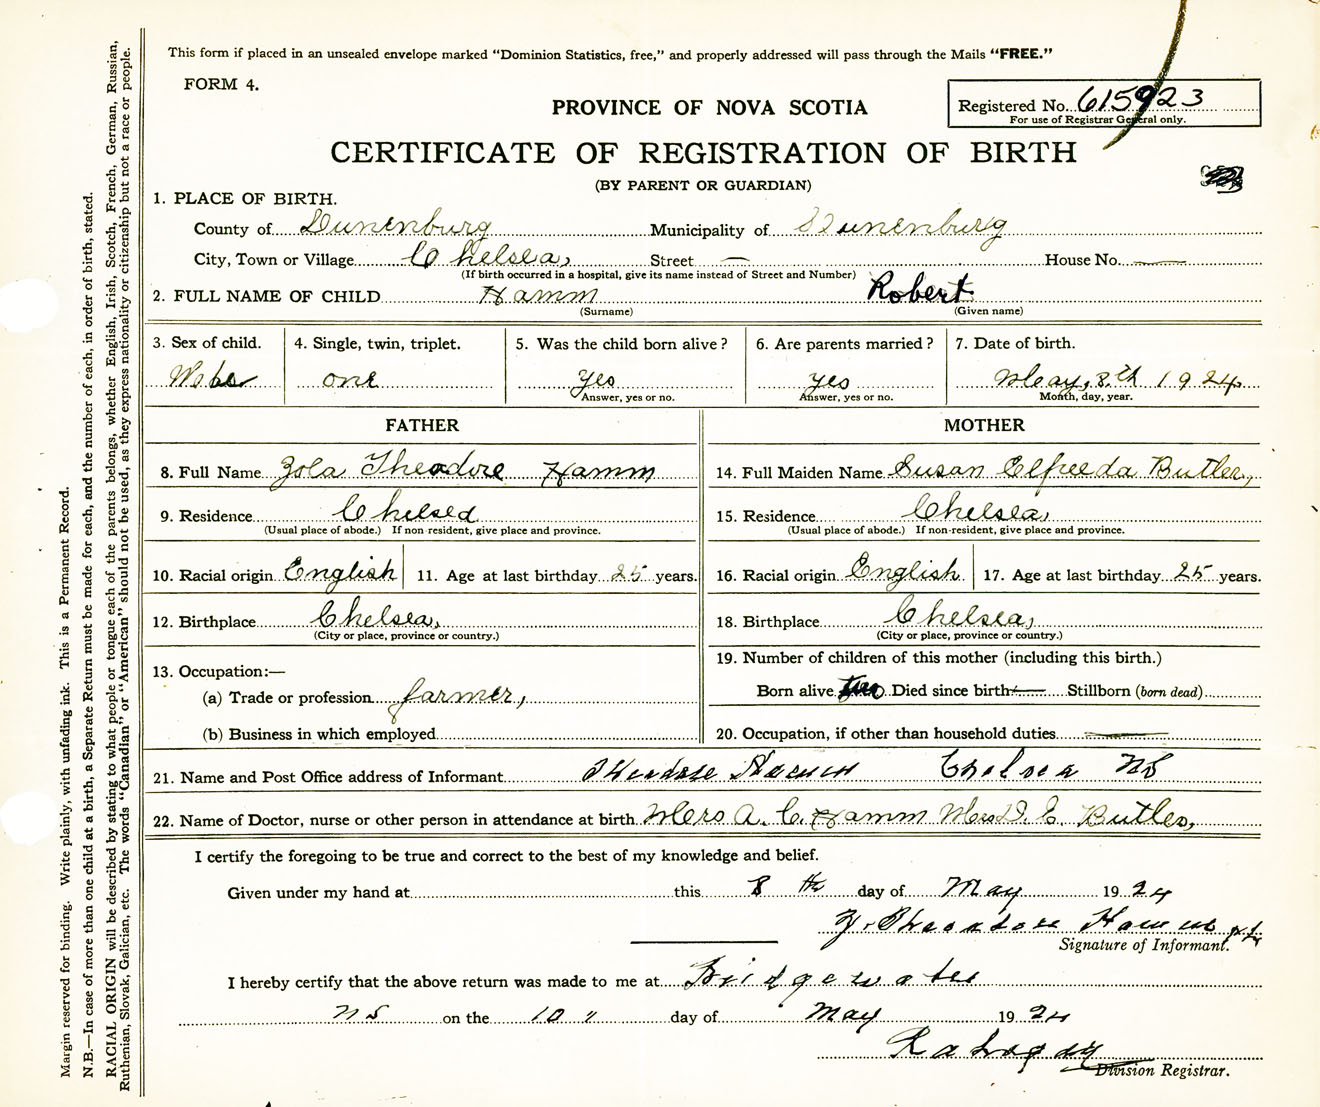 This form if placed in an unsealed envelope marked "Dominion Statistics, free," and properly addressed will pass through the Mails "FREE."
FORM 4.
PROVINCE OF NOVA SCOTIA
Registered No. 615923
For use of Registrar General only.
CERTIFICATE OF REGISTRATION OF BIRTH
(BY PARENT OR GUARDIAN)
1. PLACE OF BIRTH.
County of Lunenburg Municipality of Lunenburg
City, Town or Village Chelsea, Street — House No. —
(If birth occurred in a hospital, give its name instead of Street and Number)
2. FULL NAME OF CHILD Hamm Robert
(Surname) (Given name)
3. Sex of child. 4. Single, twin, triplet. 5. Was the child born alive? 6. Are parents married? 7. Date of birth.
one yes yes May, 8.th 1924
Answer, yes or no. Answer, yes or no. Month, day, year.
FATHER MOTHER
8. Full Name Zola Theodore Hamm 14. Full Maiden Name Susan Elfreeda Butler,
9. Residence Chelsea 15. Residence Chelsea,
(Usual place of abode.) If non-resident, give place and province. (Usual place of abode.) If non-resident, give place and province.
10. Racial origin English 11. Age at last birthday 25 years. 16. Racial origin English 17. Age at last birthday 25 years.
12. Birthplace Chelsea, 18. Birthplace Chelsea,
(City or place, province or country.) (City or place, province or country.)
13. Occupation:— 19. Number of children of this mother (including this birth.)
(a) Trade or profession farmer, Born alive two Died since birth — Stillborn (born dead)
(b) Business in which employed 20. Occupation, if other than household duties —
21. Name and Post Office address of Informant Theodore Hamm Chelsea NS
22. Name of Doctor, nurse or other person in attendance at birth Mers A. C. Hamm Mers D. E. Butler,
I certify the foregoing to be true and correct to the best of my knowledge and belief.
Given under my hand at this 8 th day of May 1924
Z. Theodore Hamm
Signature of Informant.
I hereby certify that the above return was made to me at Bridgewater
NS on the 10 " day of May 1924
Division Registrar.
Margin reserved for binding. Write plainly, with unfading ink. This is a Permanent Record.
N.B.—In case of more than one child at a birth, a Separate Return must be made for each, and the number of each, in order of birth, stated.
RACIAL ORIGIN will be described by stating to what people or tongue each of the parents belongs, whether English, Irish, Scotch, French, German, Russian,
Ruthenian, Slovak, Galician, etc. The words "Canadian" or "American" should not be used, as they express nationality or citizenship but not a race or people.